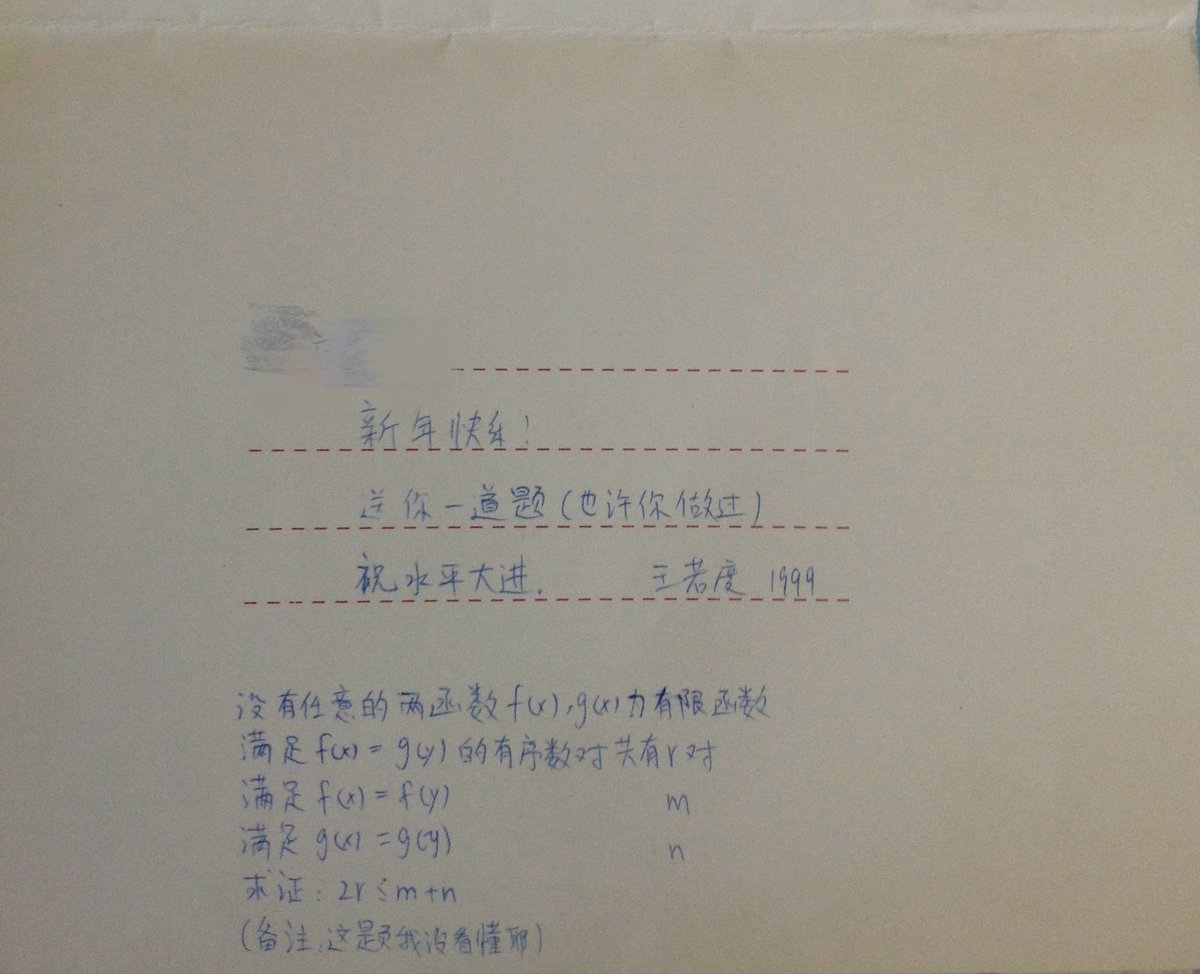 新年快乐!
送你一道题(也许你做过)
祝水平大进. 王若度 1999
设有任意的两函数f(x),g(x)为有限函数
满足f(x)=g(y)的有序数对共有r对
满足f(x)=f(y) m
满足g(x)=g(y) n
求证:2r≤m+n
(备注:这题我没看懂耶)